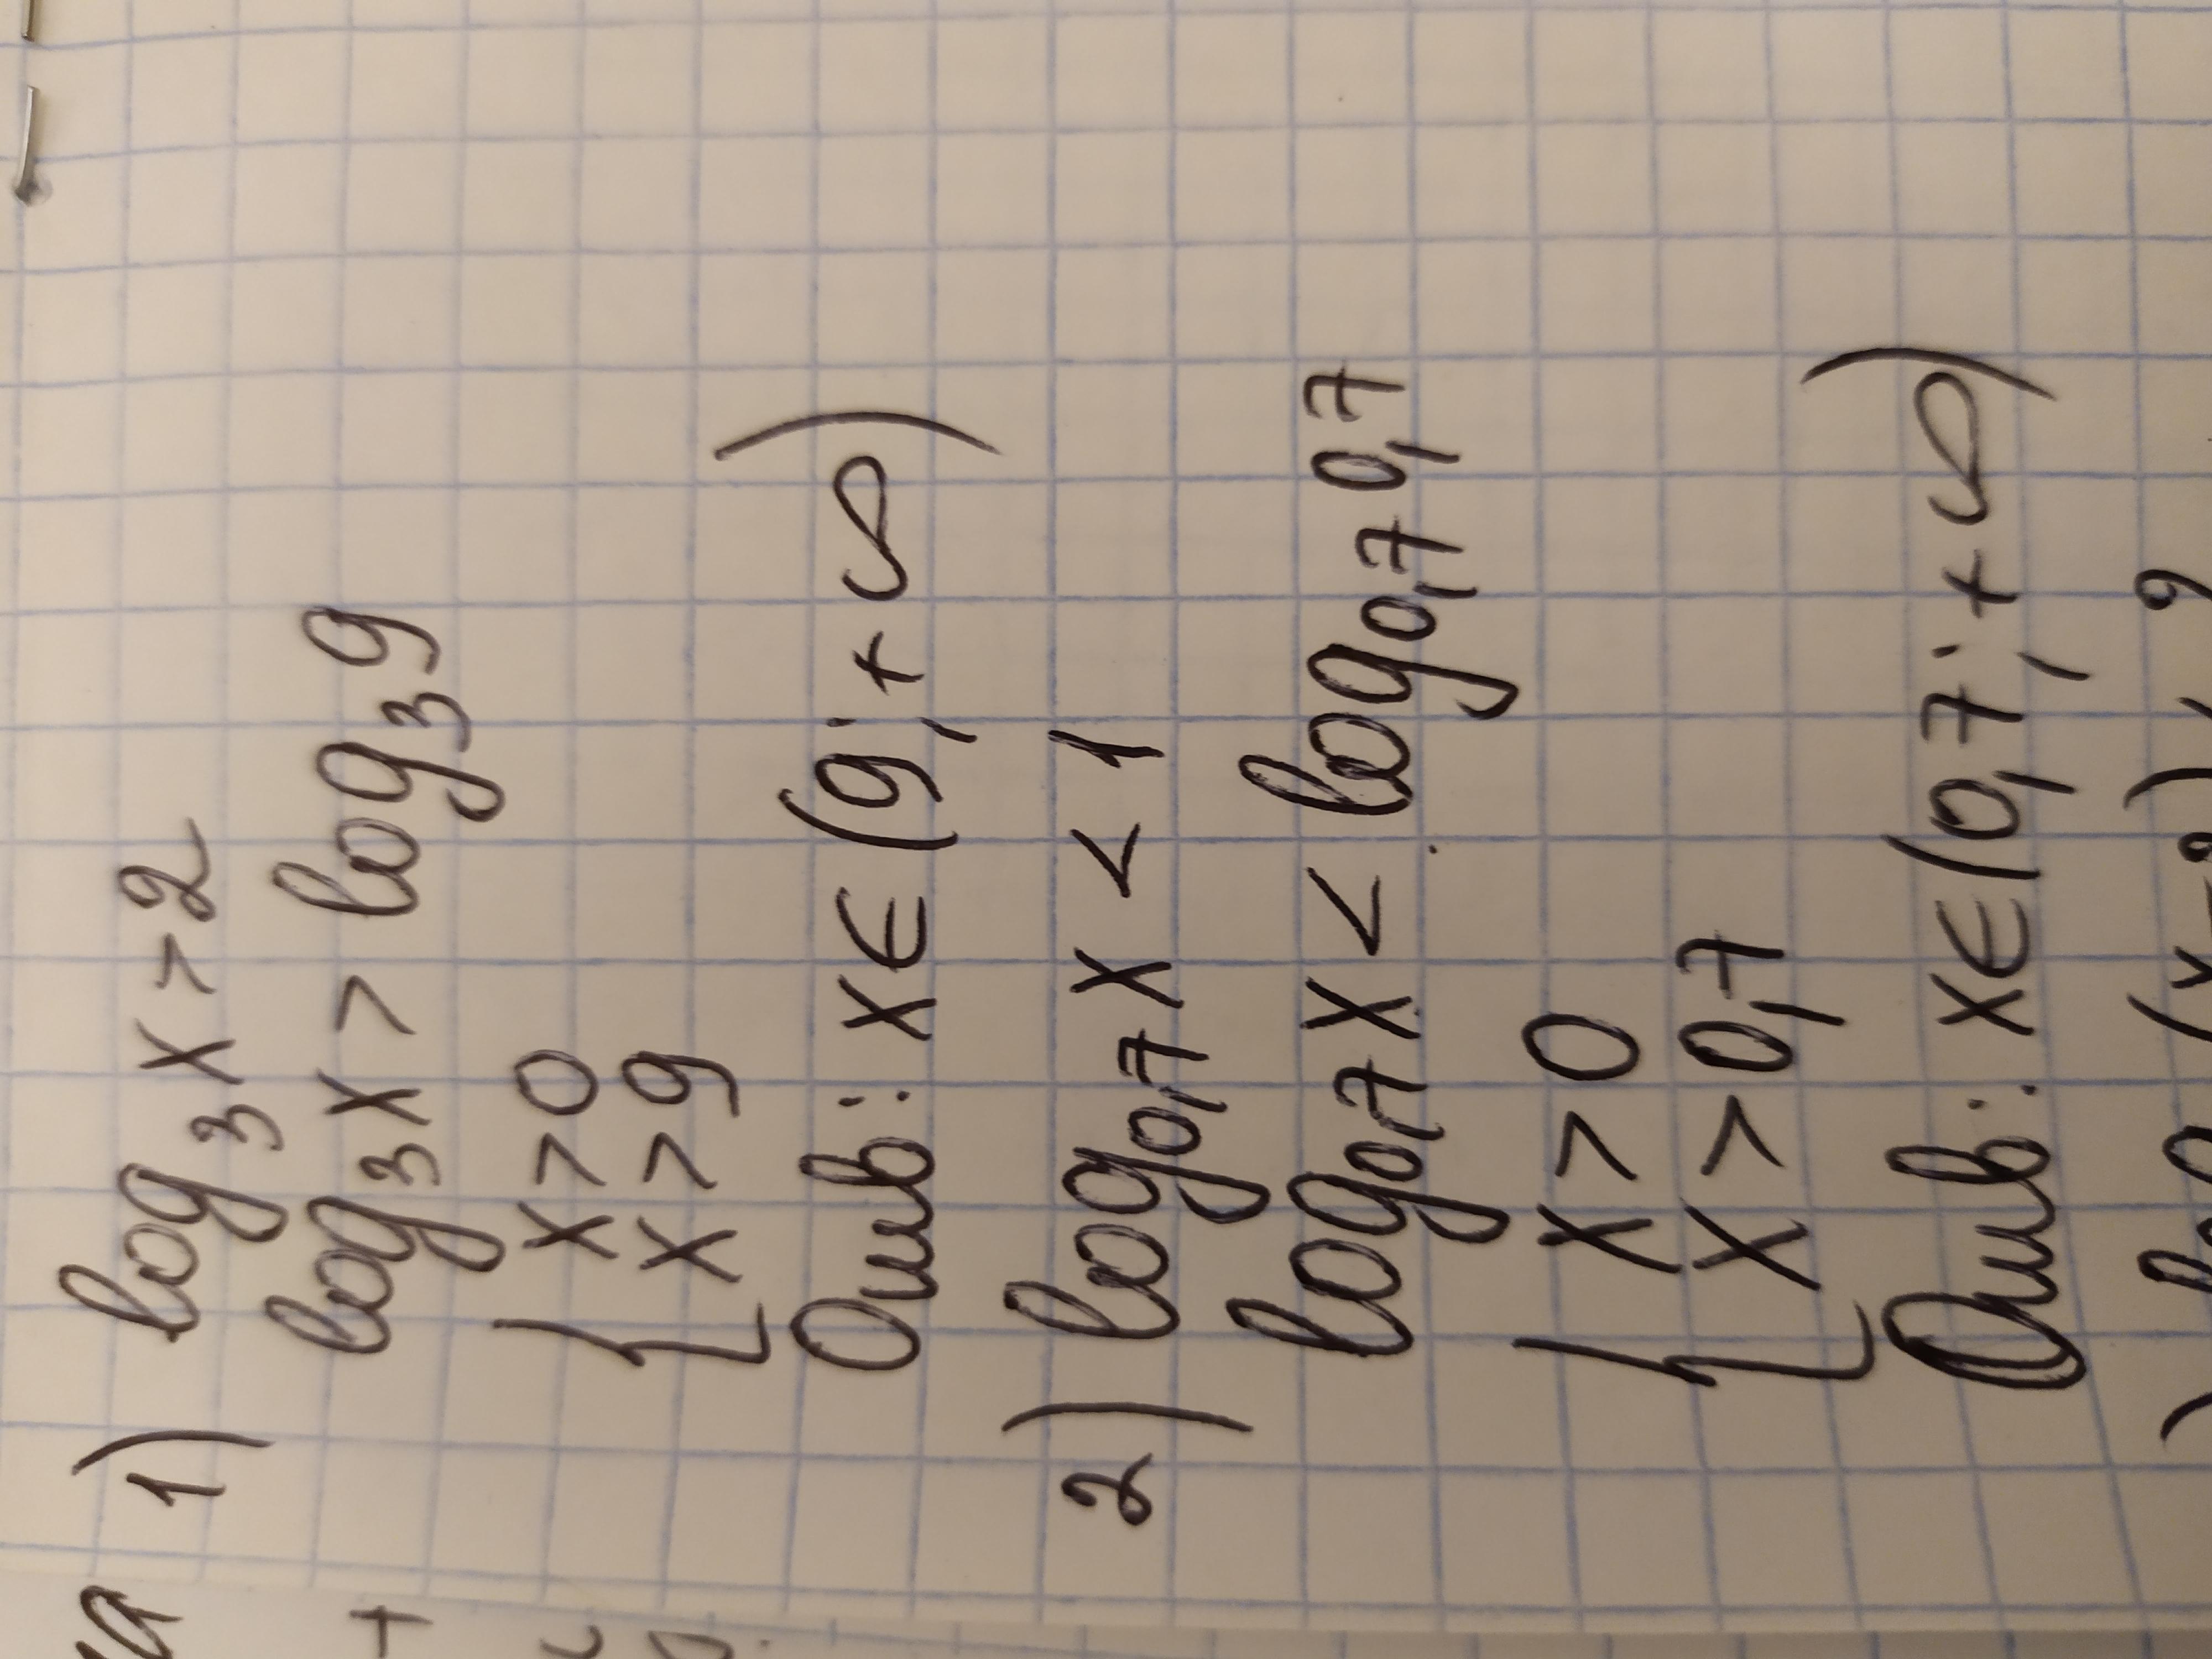 1) log₃x > 2
log₃x > log₃9
{ x > 0
x > 9
Отв: x ∈ (9; + ∞)
2) log₀,₇x < 1
log₀,₇x < log₀,₇0,7
{ x > 0
x > 0,7
Отв: x ∈ (0,7; + ∞)